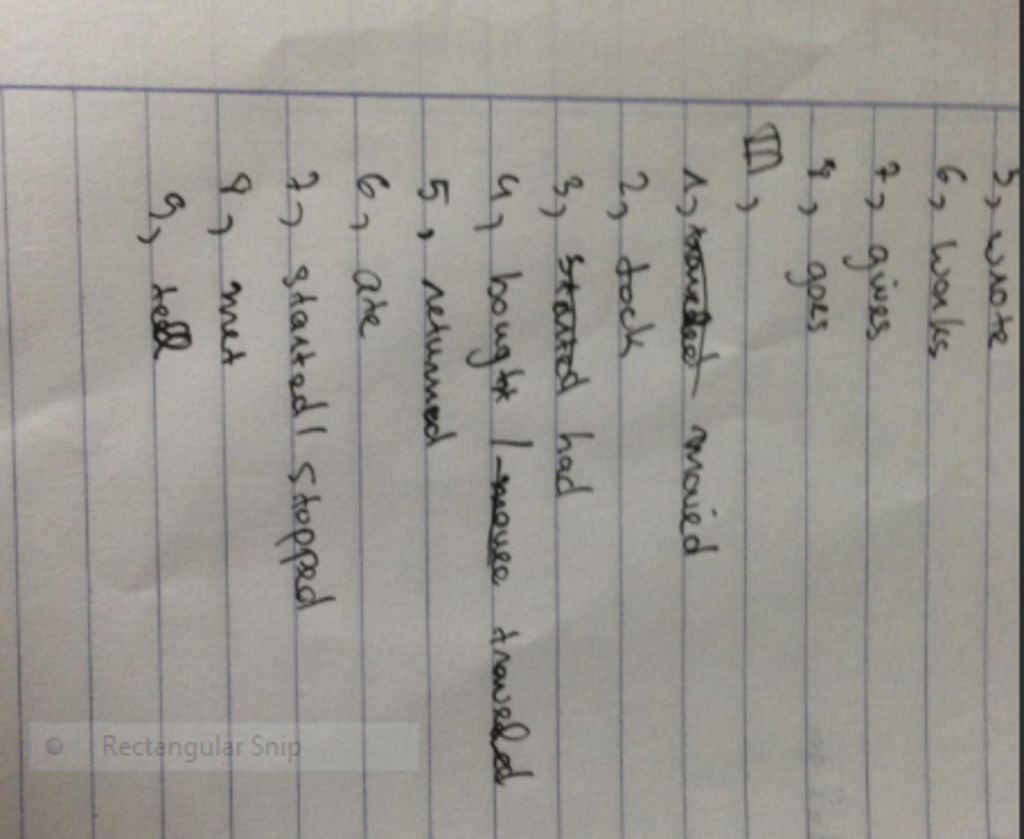 5, wrote
6, works
7, gives
8, goes
III,
1, movied
2, took
3, started had
4, bought / traveled
5, returned
6, ate
7, started / stopped
8, met
9, tell
Rectangular Snip